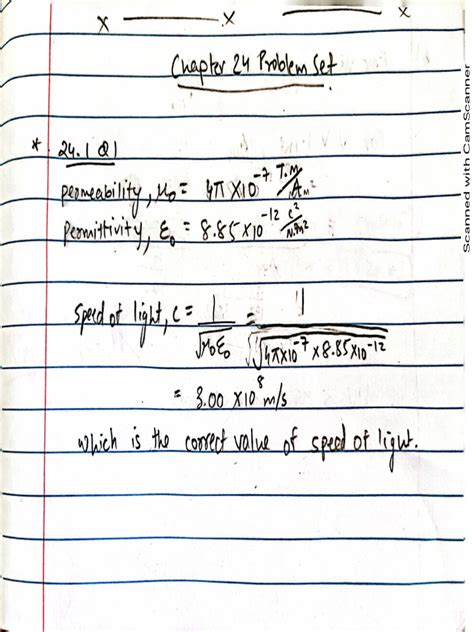 x x x
Chapter 24 Problem Set
* 24.1 Q1
permeability, μ₀ = 4π X10⁻⁷ T.m/A
Permittivity, ε₀ = 8.85x10⁻¹² C²/N.m²
Speed of light, c = 1/√μ₀ε₀ = 1/√4πx10⁻⁷ x 8.85x10⁻¹²
= 3.00 x10⁸ m/s
which is the correct value of speed of light.
Scanned with CamScanner